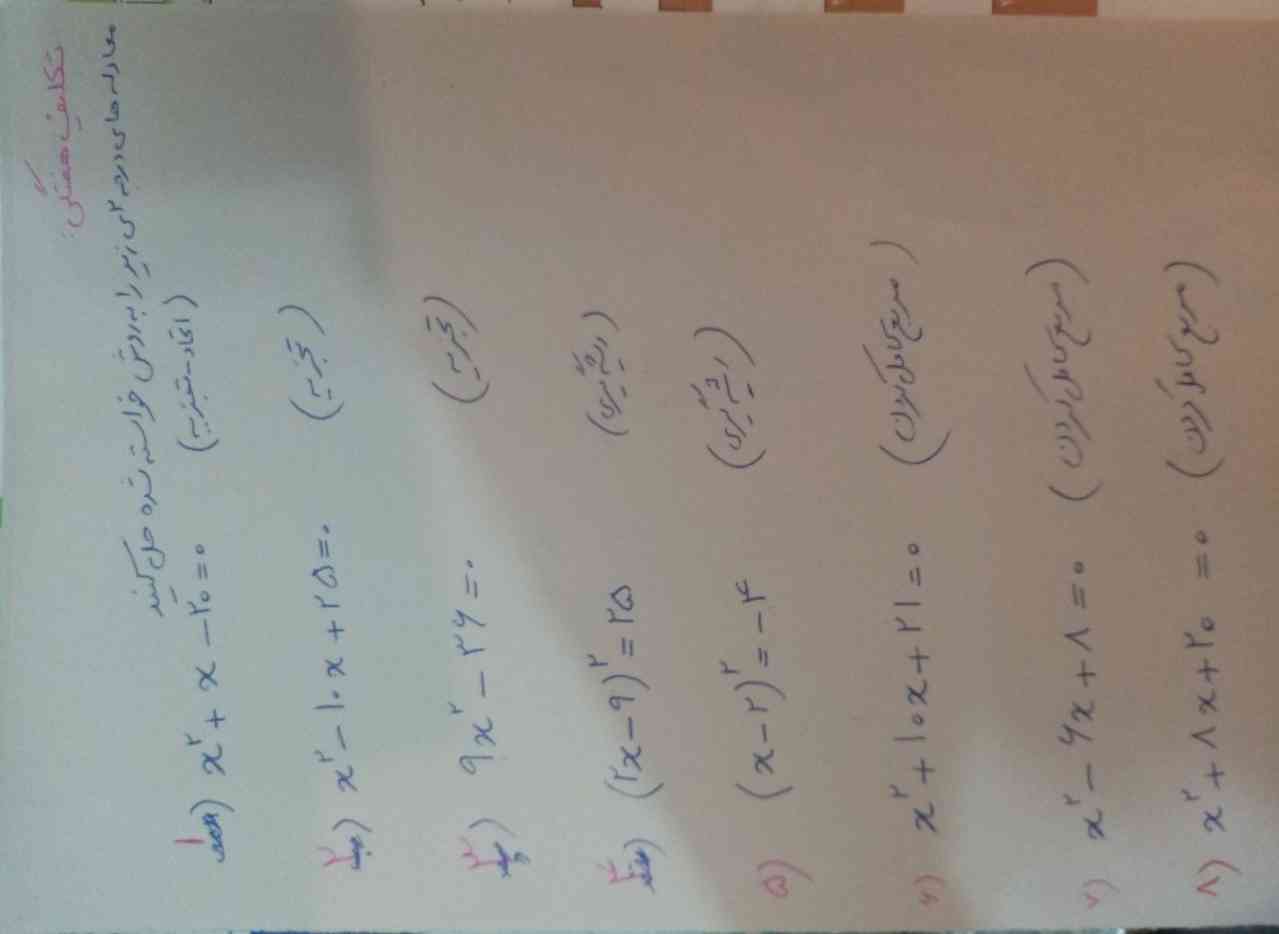 تکالیف هفتگی:
معادله های درجه ۲ی زیر را به روش خواسته شده حل کنید
۱) x²+x-۲۰=۰ (اتحاد-تجزیه)
۲) x²-۱۰x+۲۵=۰ (تجزیه)
۳) ۹x²-۳۶=۰ (تجزیه)
۴) (۲x-۹)²=۲۵ (ریشه گیری)
۵) (x-۲)²=-۴ (ریشه گیری)
۶) x²+۱۰x+۲۱=۰ (مربع کامل کردن)
۷) x²-۶x+۸=۰ (مربع کامل کردن)
۸) x²+۸x+۲۰=۰ (مربع کامل کردن)